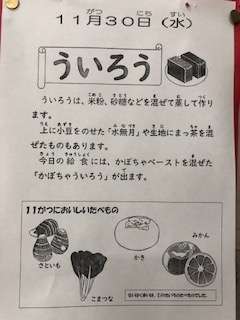 11月30日（水）
ういろう
ういろうは、米粉、砂糖などを混ぜて蒸して作り
ます。
上に小豆をのせた「水無月」や生地にまっ茶を混
ぜたものもあります。
今日の給食には、かぼちゃペーストを混ぜた
「かぼちゃういろう」が出ます。
11がつにおいしいたべもの
みかん
さといも
かき
こまつな